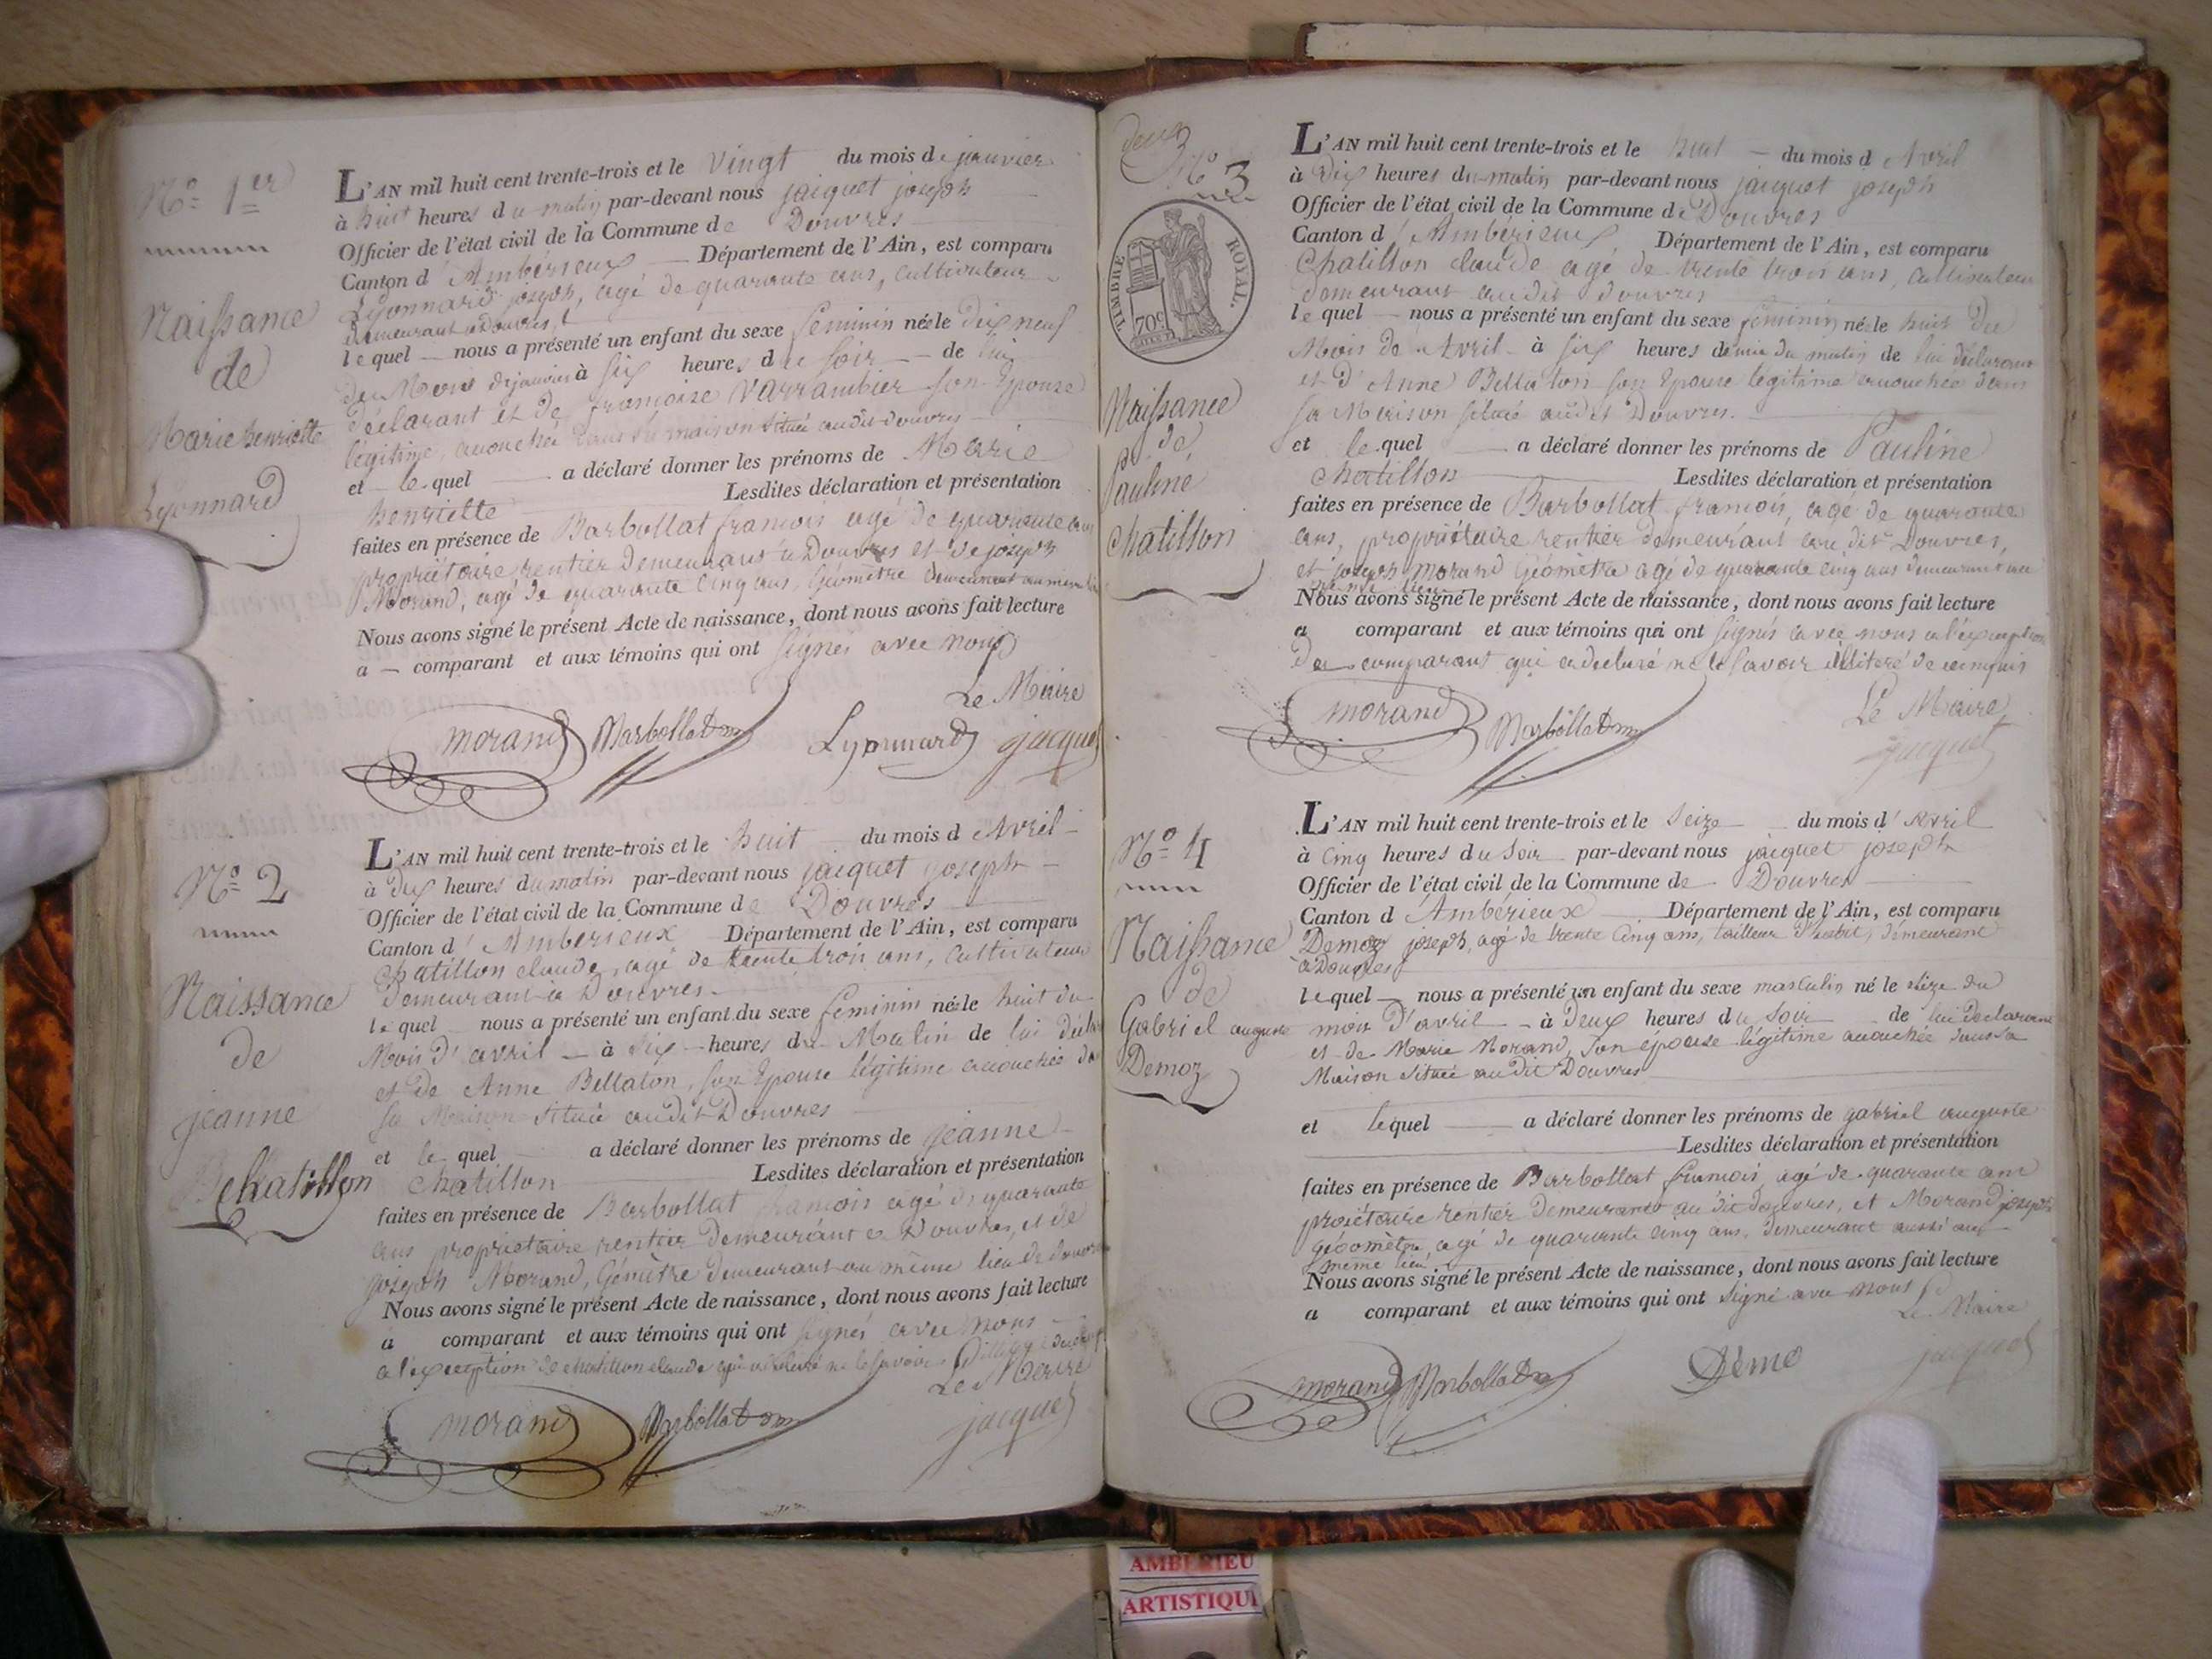 N.º 1.er
Naissance
de
Marie henriette
Lyonnard
L'AN mil huit cent trente-trois et le vingt du mois de janvier
à huit heures du matin par-devant nous jacquet joseph
Officier de l'état civil de la Commune de Douvres
Canton d'Ambérieux Département de l'Ain, est comparu
Lyonnard joseph, agé de quarante ans, cultivateur
demeurant à Douvres,
lequel nous a présenté un enfant du sexe féminin né le dix neuf
du Mois de janvier à six heures du soir de lui
déclarant et de francoise Varrambier son Epouse
légitime, accouchée dans sa maison située audit douvres
et lequel a déclaré donner les prénoms de Marie
henriette Lesdites déclaration et présentation
faites en présence de Barbollat francois agé de quarante ans
propriétaire rentier demeurant à Douvres et de joseph
Morand, agé de quarante cinq ans, Géomètre demeurant au même lieu
Nous avons signé le présent Acte de naissance, dont nous avons fait lecture
a comparant et aux témoins qui ont signés avec nous
Le Maire
morand Barbollat Lyonnard jacquet
N.º 2
Naissance
de
jeanne
chatillon
L'AN mil huit cent trente-trois et le huit du mois d'Avril
à dix heures du matin par-devant nous jacquet joseph
Officier de l'état civil de la Commune de Douvres
Canton d'Amberieux Département de l'Ain, est comparu
Chatillon claude, agé de trente trois ans, cultivateur
demeurant à Douvres.
lequel nous a présenté un enfant du sexe féminin né le huit du
Mois d'avril à six heures du Matin de lui
et de Anne Bellaton, son Epouse légitime accouchée
sa Maison située audit Douvres
et lequel a déclaré donner les prénoms de jeanne
chatillon Lesdites déclaration et présentation
faites en présence de Barbollat francois agé de quarante
ans propriétaire rentier demeurant à Douvres, et de
joseph Morand, Géomètre demeurant au même lieu de
Nous avons signé le présent Acte de naissance, dont nous avons fait lecture
a comparant et aux témoins qui ont signés avec nous
a l'exception de chatillon claude qui a déclaré ne le savoir
Le Maire
morand Barbollat jacquet
deux
N.º 3
TIMBRE ROYAL.
70c
Naissance
de
Pauline
Chatillon
L'AN mil huit cent trente-trois et le huit du mois d Avril
à Dix heures du matin par-devant nous jacquet joseph
Officier de l'état civil de la Commune de Douvres
Canton d'Ambérieux Département de l'Ain, est comparu
Chatillon claude agé de trente trois ans, cultivateur
demeurant audit Douvres
lequel nous a présenté un enfant du sexe féminin né le huit du
Mois de Avril à six heures demie du matin de lui déclarant
et d'Anne Bellaton son Epouse légitime accouchée dans
sa Maison située audit Douvres.
et lequel a déclaré donner les prénoms de Pauline
Chatillon Lesdites déclaration et présentation
faites en présence de Barbollat francois, agé de quarante
ans, propriétaire rentier demeurant au dit Douvres,
et joseph morand Géomètre agé de quarante cinq ans demeurant au
même lieu
Nous avons signé le présent Acte de naissance, dont nous avons fait lecture
a comparant et aux témoins qui ont signés avec nous a l'exception
Du comparant qui a declaré ne le savoir de ce enquis
Le Maire
morand Barbollat jacquet
N.º 4
Naissance
de
Gabriel auguste
Demoz
L'AN mil huit cent trente-trois et le Seize du mois d'Avril
à Cinq heures du Soir par-devant nous jacquet joseph
Officier de l'état civil de la Commune de Douvres
Canton d'Ambérieux Département de l'Ain, est comparu
Demoz joseph, agé de trente Cinq ans, tailleur d'habit, demeurant
à Douvres
lequel nous a présenté un enfant du sexe masculin né le seize du
mois d'avril à deux heures du Soir de lui declarant
et de Marie Morand, Son épouse légitime accouchée dans sa
Maison située au dit Douvres
et lequel a déclaré donner les prénoms de gabriel auguste
Lesdites déclaration et présentation
faites en présence de Barbollat francois, agé de quarante ans
proiétaire rentier demeurant au dit douvres, et Morand joseph
géomètre, agé de quarante cinq ans, demeurant aussi au
même lieu
Nous avons signé le présent Acte de naissance, dont nous avons fait lecture
a comparant et aux témoins qui ont signé avec nous
Le Maire
morand Barbollat Démo jacquet
AMBERIEU
ARTISTIQUE